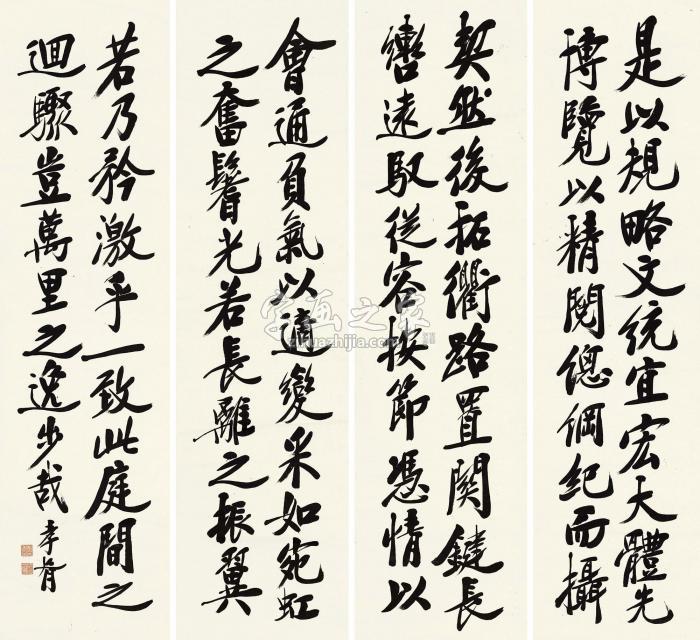 是以規略文統宜宏大體先
博覽以精閱總綱紀而攝
契然後拓衢路置關鍵長
轡遠馭從容按節憑情以
會通負氣以適變采如宛虹
之奮鬐光若長離之振翼
若乃矜激乎一致此庭間之
迴驟豈萬里之逸步哉
孝胥
字画之家
zihuazhijia.com